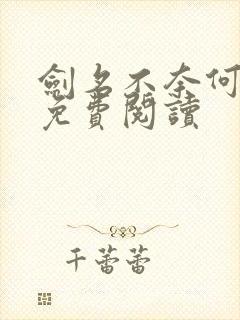 劍名不奈何
免費閱讀
千蕾蕾